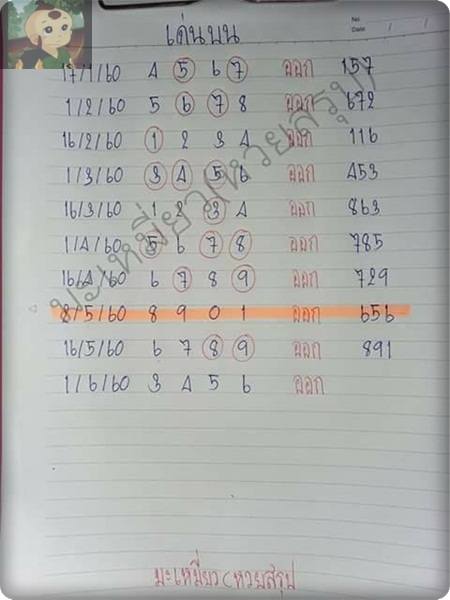 No
Date / /
เด่นบน
17/1/60 4 5 6 7 ออก 157
1/2/60 5 6 7 8 ออก 672
16/2/60 1 2 3 4 ออก 116
1/3/60 3 4 5 6 ออก 453
16/3/60 1 2 3 4 ออก 863
1/4/60 5 6 7 8 ออก 785
16/4/60 6 7 8 9 ออก 729
8/5/60 8 9 0 1 ออก 656
16/5/60 6 7 8 9 ออก 891
1/6/60 3 4 5 6 ออก
มะเหมี่ยว(หวยสรุป
มะเหมี่ยว(หวยสรุป